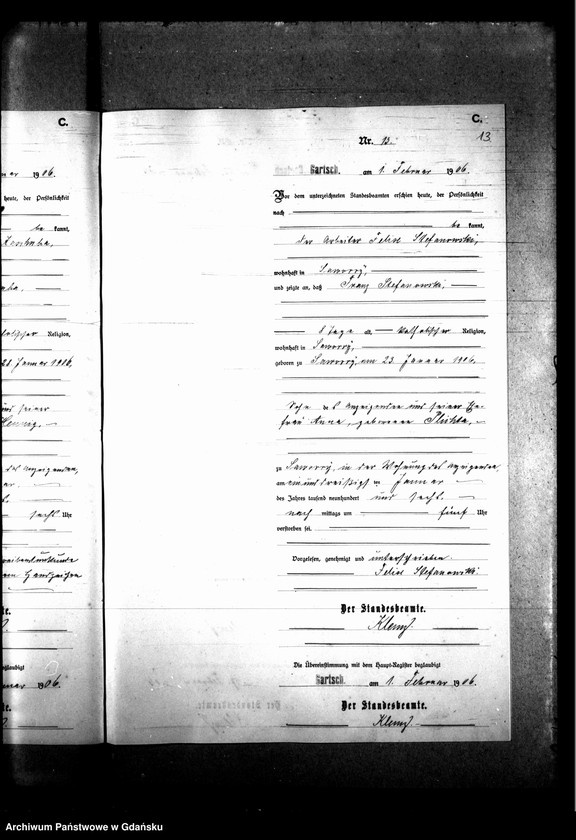 C.
uar 1906.
heute, der Persönlichkeit
be kannt,
Religion,
Januar 1906,
und seiner
des Anzeigenden,
sechs Uhr
C.
13
Nr. 13.
Gartsch, am 1. Februar 1906.
Vor dem unterzeichneten Standesbeamten erschien heute, der Persönlichkeit
nach
be kannt,
der Arbeiter Felix Stefanowski,
wohnhaft in Saworry,
und zeigte an, daß Franz Stefanowski,
8 Tage a. katholischer Religion,
wohnhaft in Saworry,
geboren zu Saworry, am 23. Januar 1906,
Sohn des Anzeigenden und seiner Ehe-
frau Anna, geborene
zu Saworry, in der Wohnung des Anzeigenden,
am einunddreißigsten Januar
des Jahres tausend neunhundert und sechs
nach mittags um fünf Uhr
verstorben sei.
Vorgelesen, genehmigt und unterschrieben
Felix Stefanowski.
Der Standesbeamte.
Klemz
Die Übereinstimmung mit dem Haupt-Register beglaubigt
Gartsch, am 1. Februar 1906.
Der Standesbeamte.
Klemz
Archiwum Państwowe w Gdańsku